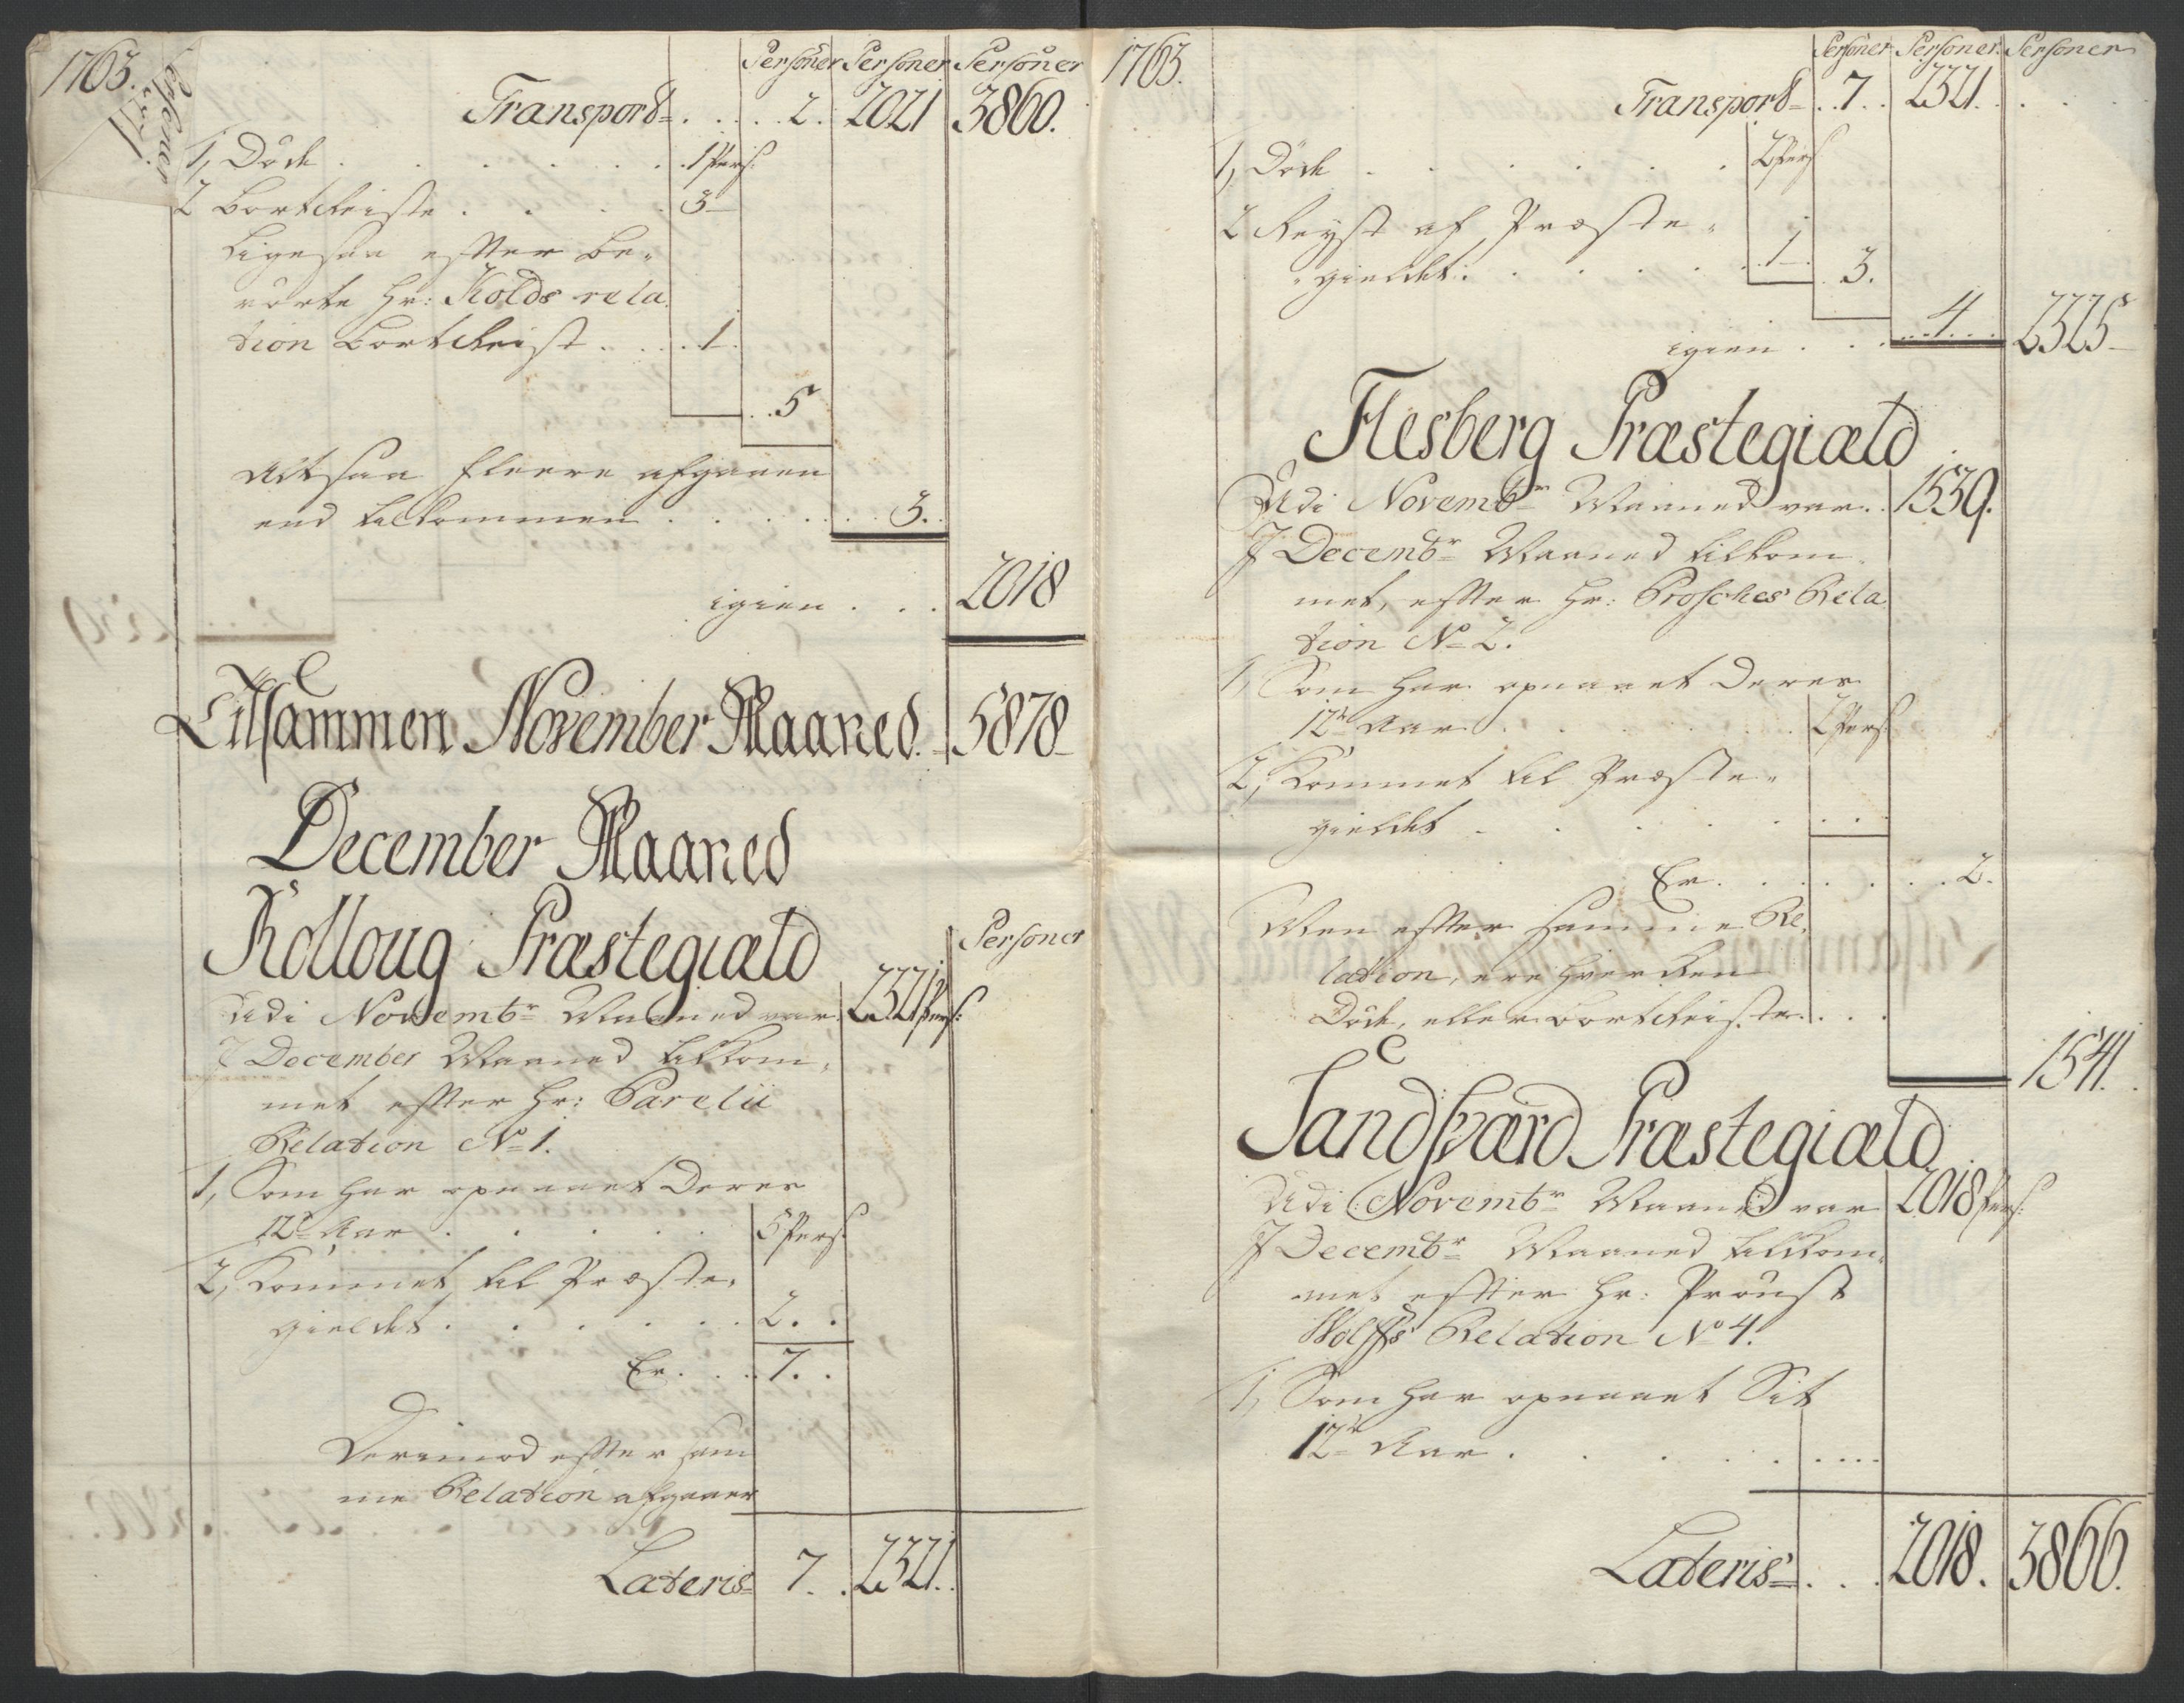 1763.
Personer
Personer Personer Personer
Transport . . . . 2. 2021 3860.
1, Døde . . . . . . 1 Pers:
2 Bortreiste . . . . 3
Ligesaa efter be-
rørte Hr: Kolds rela
tion Bortreist . . . 1.
5
Altsaa fleere afgaaen
end tilkommen . . . . . . 3.
igien . . . 2018
Tilsammen November Maaned. 5878
December Maaned
Rolloug Præstegiæld
Personer
Udi Novembr Maaned var 2321 Pers:
I December Maaned tilkom-
met efter Hr: Parelii
Relation No 1.
1, Som har opnaaet Deres
12te Aar . . . . . 5 Pers:
2, Kommet til Præste-
gieldet . . . . . . 2. .
Er . . . 7. .
Derimod efter sam
me Relation afgaaen
Lateris 7. . 2321.
1763.
Personer Personer Personer
Transport . . 7. . 2321. . . .
1, Døde . . . . . . 2 Pers
2 Reyst af Præste-
gieldet . . . . . 1 3.
4
igien . . . 2325
Flesberg Præstegiæld
Udi Novembr Maaned var . . 1539.
I Decembr Maaned tilkom
met, efter Hr: Brosches Rela
tion No 2.
1, Som har opnaaet Deres
12te Aar . . . . . . 2 Pers:
2, Kommet til Præste-
gieldet . . . . . . . .
Er . . . . . . 2.
Men efter samme Re-
lation, ere hverken
Døde, eller bortreiste . . . .
1541.
Sandsværd Præstegiæld
Udi Novembr Maaned var 2018 Pers:
I Decembr Maaned tilkom-
met efter Hr: Proust
Wolffs Relation No 4.
1, Som har opnaaet Sit
12te Aar . . . . . . . . .
Lateris . . . 2018. 3866.